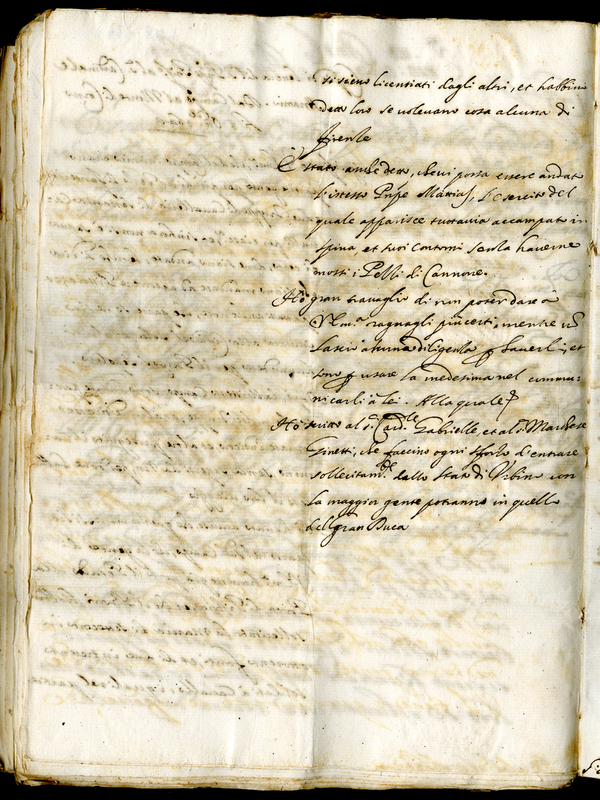 si sieno licentiati dagli altri, et habbino
detto loro se volevano cosa alcuna di
firenle
È stato anche detto, che vi possa essere andato
l'istesso Pnpe Mattias, l'esercito del
quale apparisce tuttavia accampato in
spina, et suoi contorni senla haverne
mossi i Pelli di Cannone.
Hò gran travaglio di non poter dare à
V. Em.ª ragnagli più certi, mentre nõ
lascio alcuna diligenla p haverli, et
sono p usare la medesima nel commu-
nicarli à lei. Alla quale
Hò scritto al s.r Card.le Gabrielle, et al s.r Marchese
Ginetti, che faccino ogni sforlo d'entrare
sollecitam.te dallo stato di Urbino con
la maggior gente potranno in quello
del gran Duca